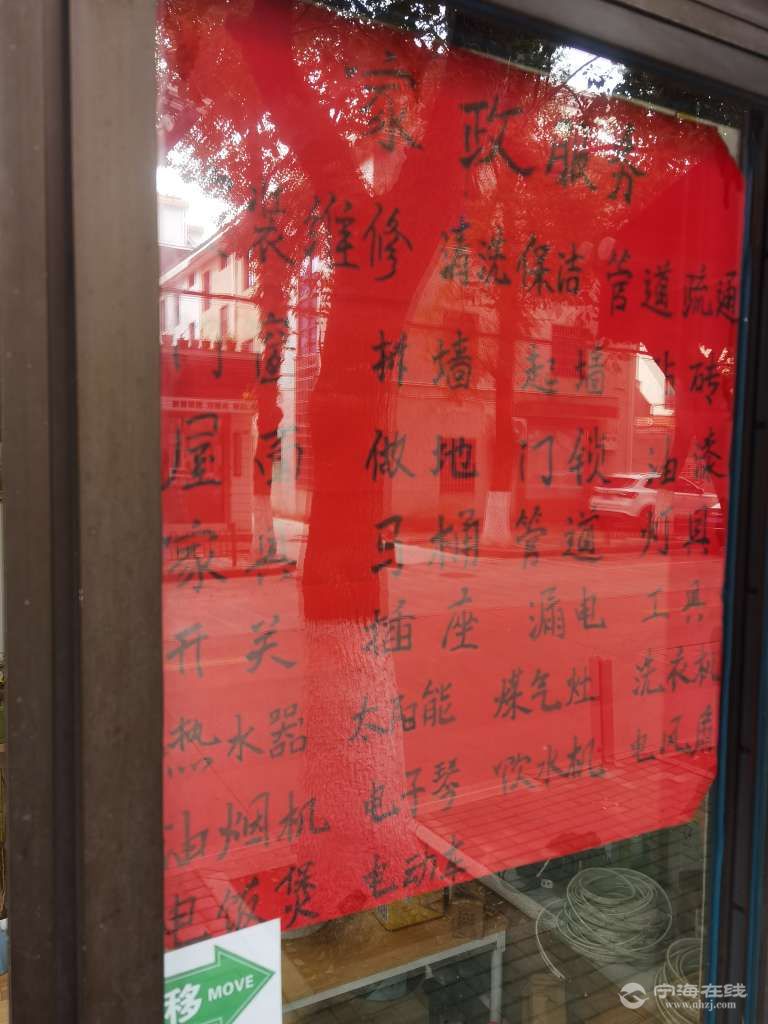 家政服务
装维修 清洗保洁 管道疏通
门窗 拆墙 起墙 砖
屋面 做地 门锁 油漆
家具 马桶 管道 灯具
开关 插座 漏电 工具
热水器 太阳能 煤气灶 洗衣机
油烟机 电子琴 饮水机 电风扇
电饭煲 电动车
移 MOVE
宁海在线
www.nhzj.com